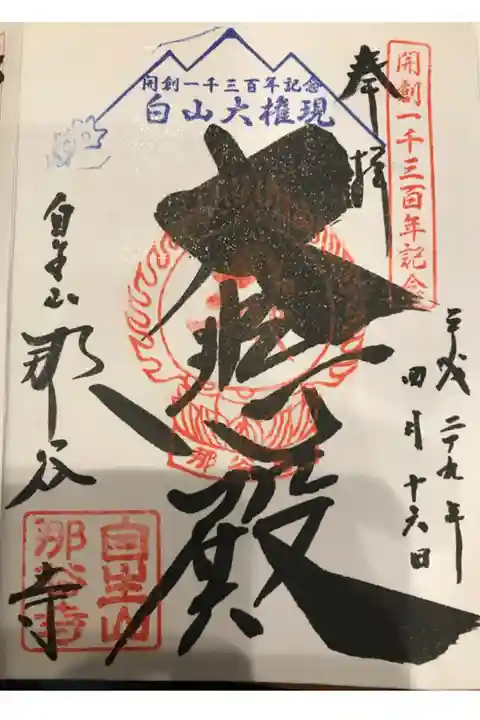 開創一千三百年記念
奉拝
平成二十九年
四月十六日
開創一千三百年記念
白山大権現
大悲殿
那谷
自生山 那谷寺
自生山
那谷寺